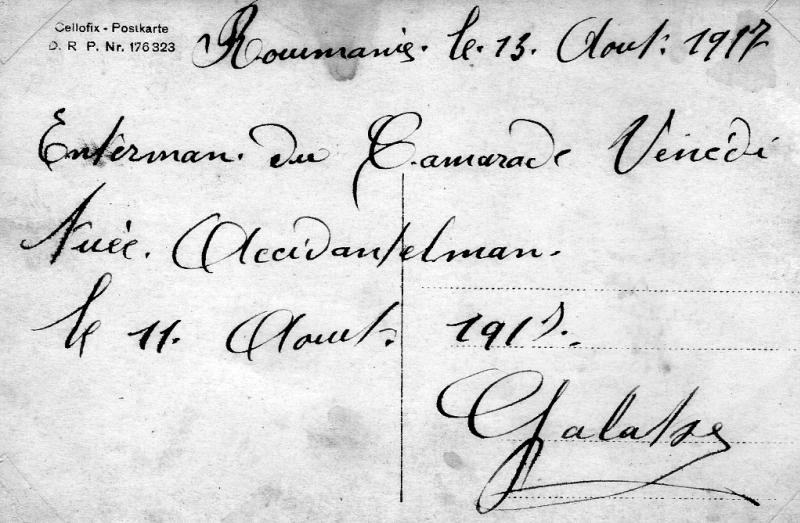 Cellofix - Postkarte
D. R. P. Nr. 176323
Roumanie. le. 13. Aout. 1917
Enterman. du Camarade Vénédi
Tuée. Accidantelman.
le 11. Aout. 1917.
Galatze